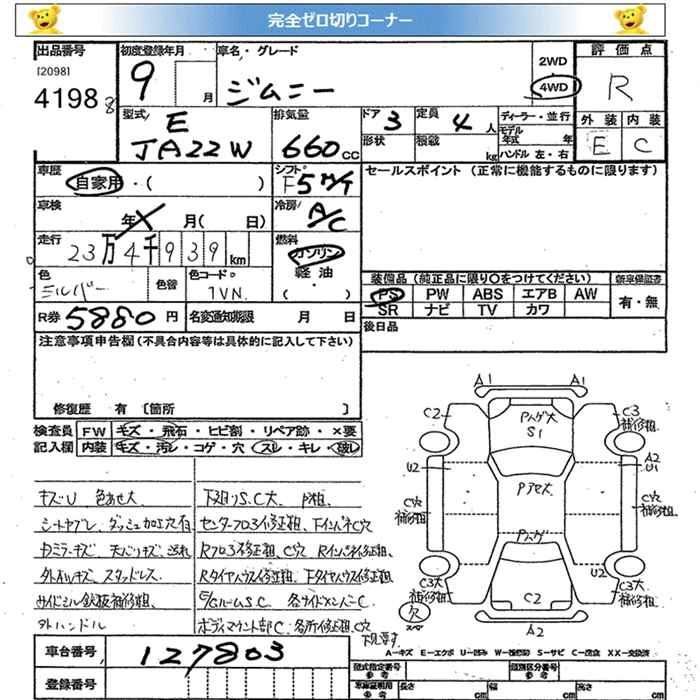 完全ゼロ切りコーナー
出品番号
[2098]
41988
初度登録年月
9
月
車名・グレード
ジムニー
2WD
4WD
評価点
R
外装
内装
E
C
型式
E
JA22W
排気量
660cc
ドア 3
形状
定員 4人
積載 kg
ディーラー・並行
モデル年式 年
ハンドル 左・右
車歴
自家用・( )
シフト
F5M/T
セールスポイント (正常に機能するものに限ります)
車検
年 月( 日)
冷房
A/C
走行
23万4千939km
燃料
ガソリン
軽油
・( )
色
シルバー
色替
色コード
1VN
装備品(純正品に限り○をつけてください)
新車保証書
PS PW ABS エアB AW
SR ナビ TV カワ
有・無
R券 5880円
名変通知期限 月 日
後日品
注意事項申告欄(不具合内容等は具体的に記入して下さい)
修復歴 有 [箇所 ]
検査員記入欄
FW キズ・飛石・ヒビ割・リペア跡・×要
内装 キズ・汚レ・コゲ・穴・スレ・キレ・破レ
キズU 色あせ大
シートヤブレ、ダッシュ加工穴有
ワミラーキズ 天バリキズ、
外ホイルキズ、スタッドレス.
サイドシル鉄板補修粗、
外ハンドル
下廻りS.C大、P粗、
センターフロア修正粗、FインパネC穴
Rフロア修正粗、C穴 Rインパネ修正粗、
Rタイヤハウス修正粗、Fタイヤハウス修正粗、
E/GルームS.C 各サイドメンバーC
ボディマウント部C、各所修正粗C穴
下見要す
A1
A1
C2
Pハゲ大
S1
C3
補修粗
U2
A2
U1
Pアセ大
C穴
補修粗
C穴
補修粗
Pハゲ
U2
C3大
補修粗
C3大
補修粗
C2
欠
スペア
A2
A-キズ E-エクボ U-凹み W-補修跡 S-サビ C-腐食 XX-交換済
車台番号
127803
登録番号
型式指定番号
参考
類別区分番号
参考
車庫証明用
参考
長さ cm
幅 cm
高さ cm